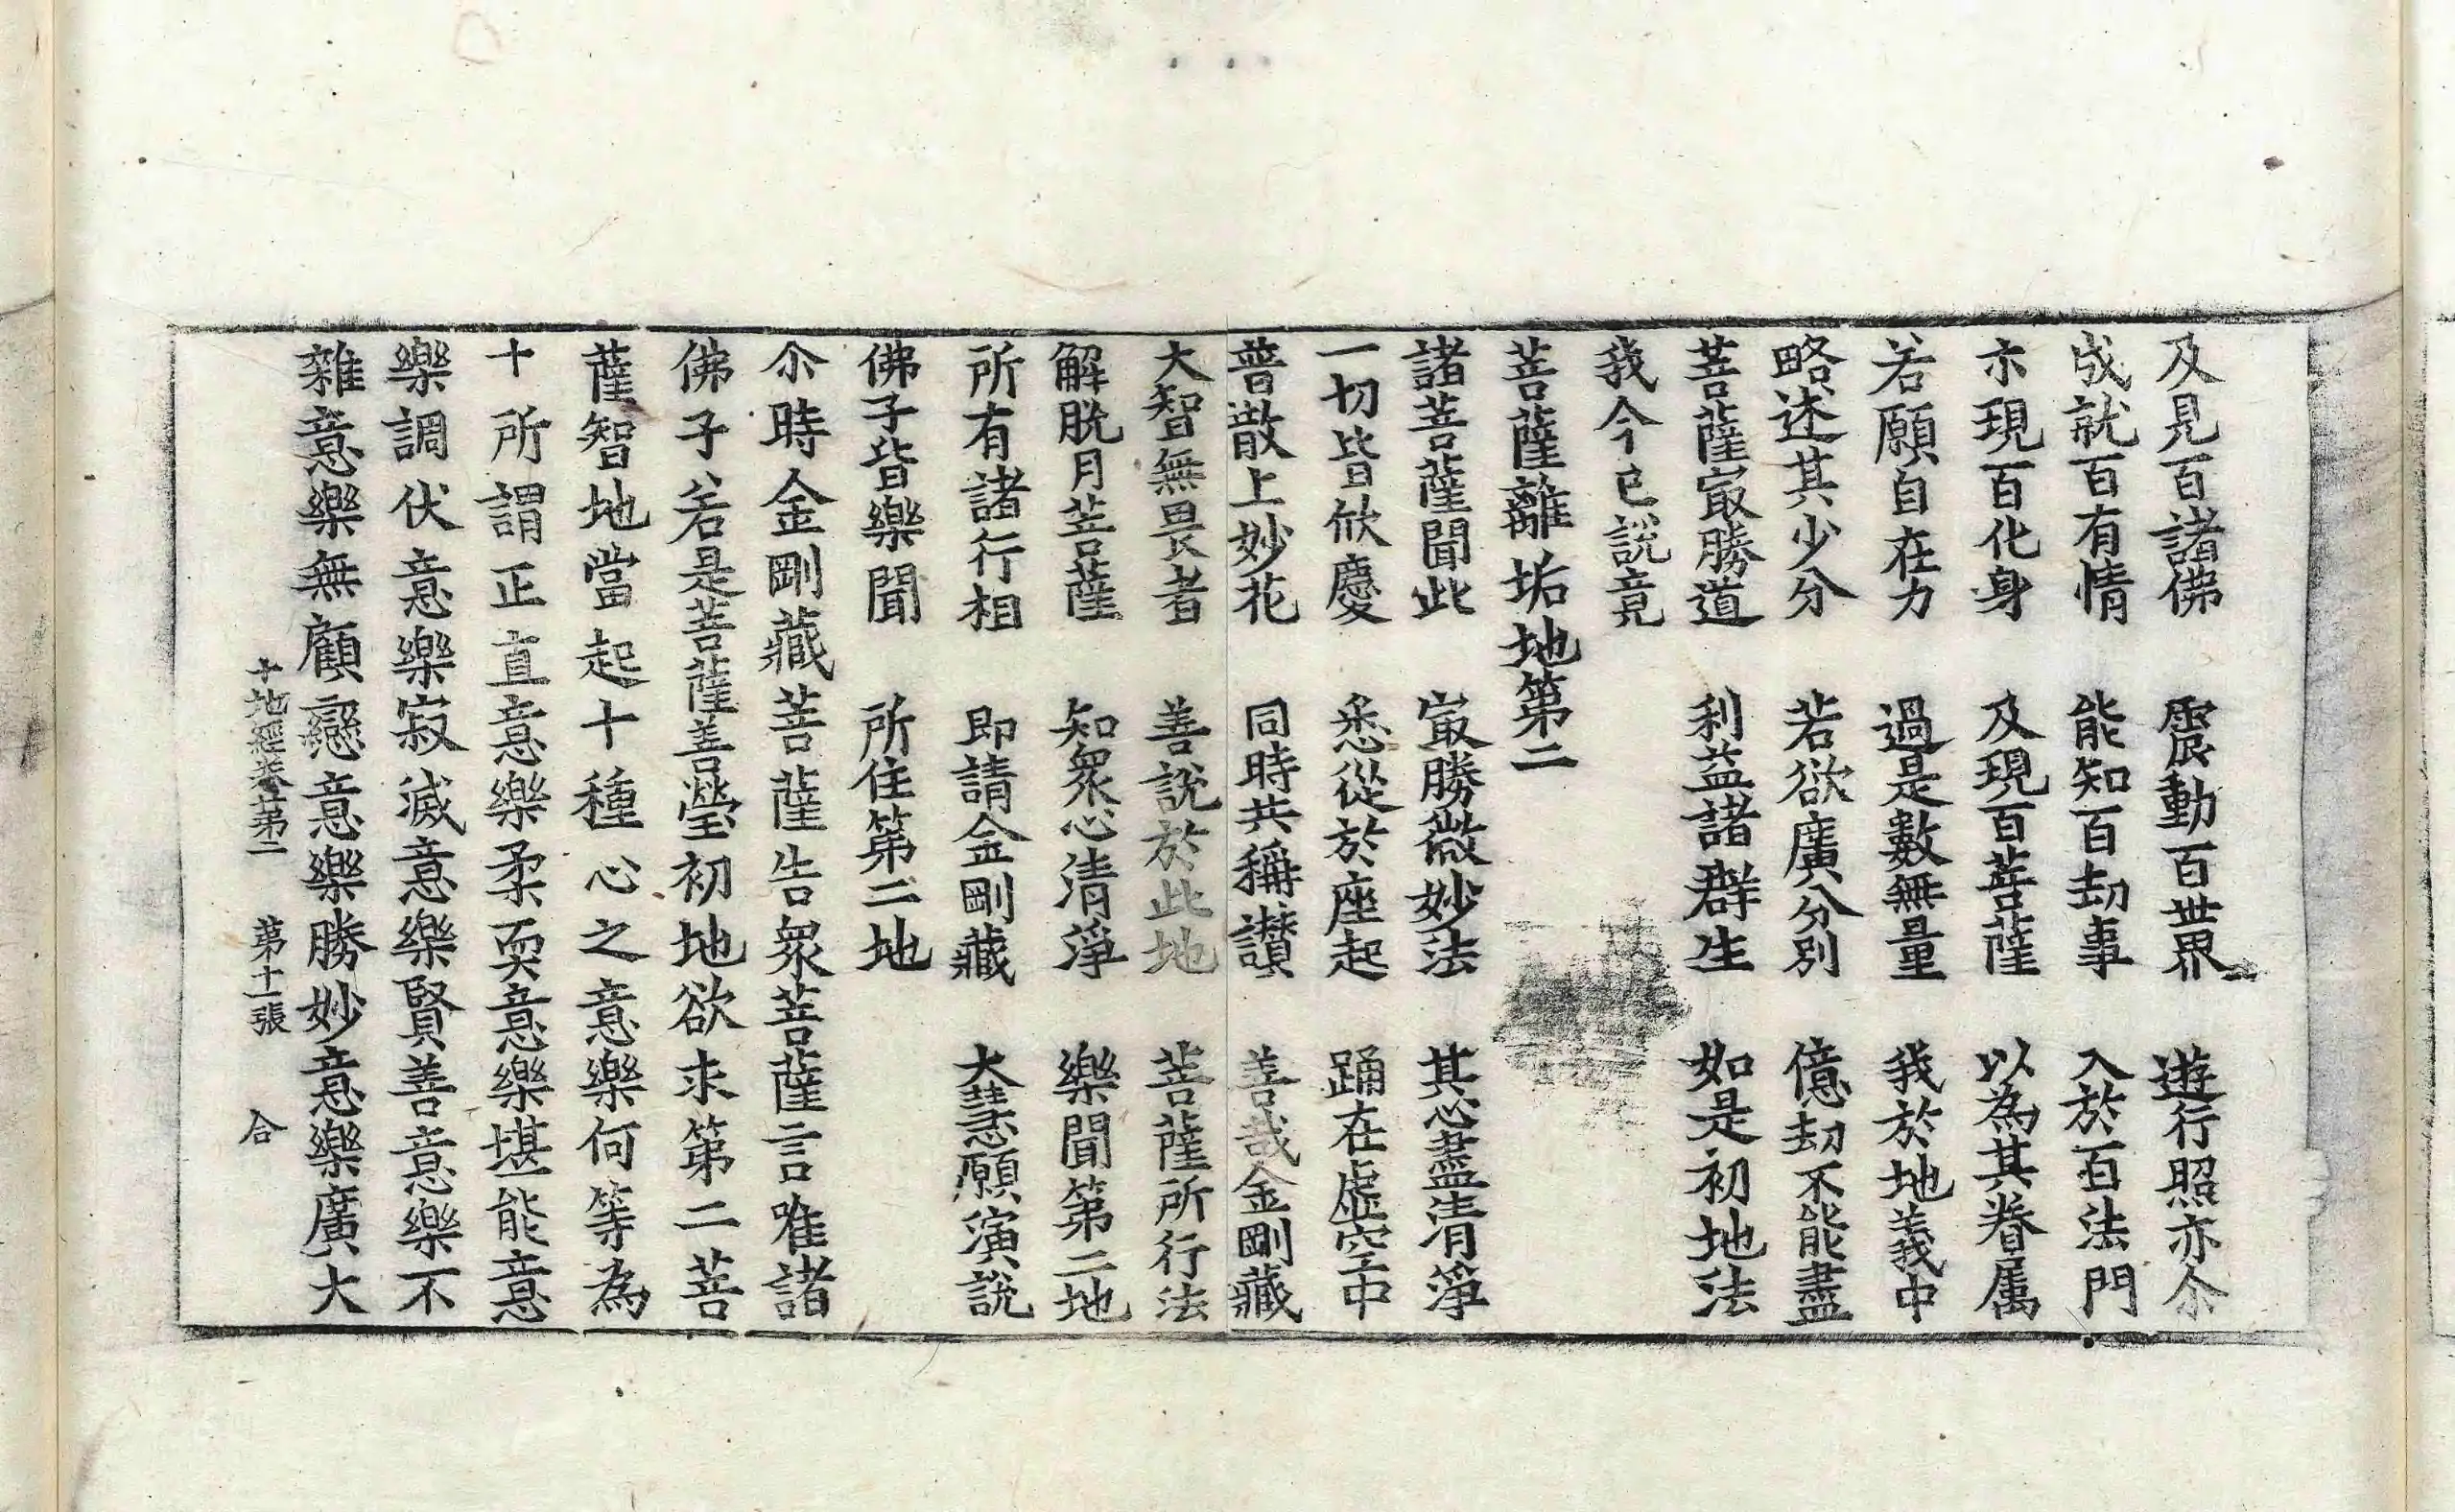 及見百諸佛　震動百世界　遊行照亦尒
成就百有情　能知百劫事　入於百法門
亦現百化身　及現百菩薩　以為其眷属
若願自在力　過是數無量　我於地義中
略述其少分　若欲廣分別　億劫不能盡
菩薩㝡勝道　利益諸群生　如是初地法
我今已說竟
菩薩離垢地第二
諸菩薩聞此　㝡勝微妙法　其心盡清淨
一切皆欣慶　悉從於座起　踊在虛空中
普散上妙花　同時共稱讃　善哉金剛藏
大智無畏者　善說於此地　菩薩所行法
解脫月菩薩　知衆心清淨　樂聞第二地
所有諸行相　即請金剛藏　大慧願演說
佛子皆樂聞　所住第二地
尒時金剛藏菩薩告衆菩薩言唯諸
佛子若是菩薩善瑩初地欲求第二菩
薩智地當起十種心之意樂何等為
十所謂正直意樂柔耎意樂堪能意
樂調伏意樂寂滅意樂賢善意樂不
雜意樂無顧戀意樂勝妙意樂廣大
十地經卷第二　第十一張　合